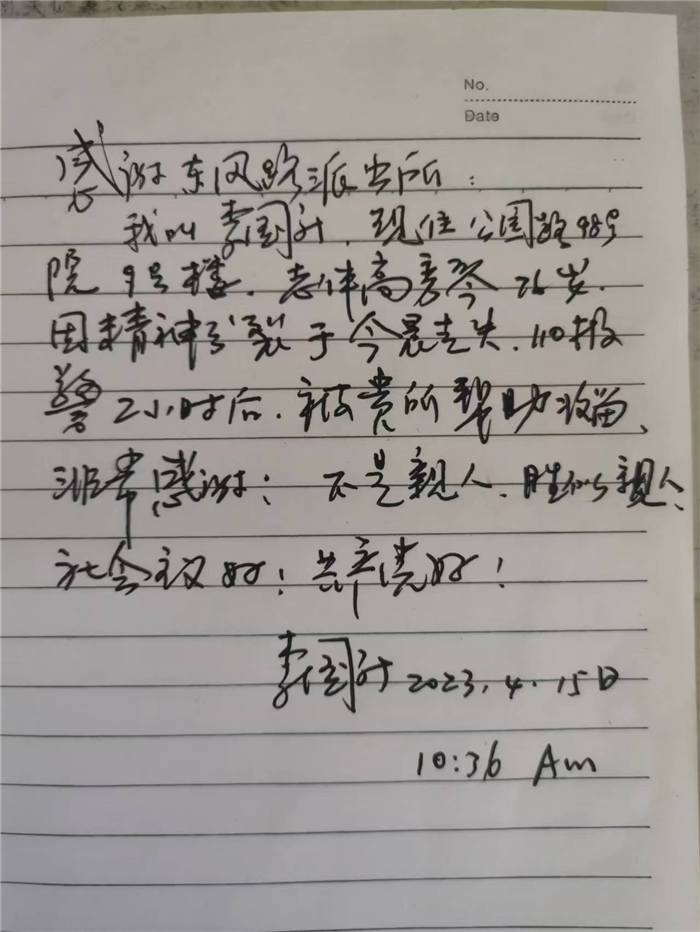 No.
Date
感谢东风路派出所：
我叫李国升，现住公园路98号
院9号楼。老伴高秀琴76岁.
因精神分裂于今晨走失.110报
警2小时后.被贵所帮助收留、
非常感谢！不是親人、胜似親人、
社会主义好！共产党好！
李国升 2023.4.15日
10:36 Am